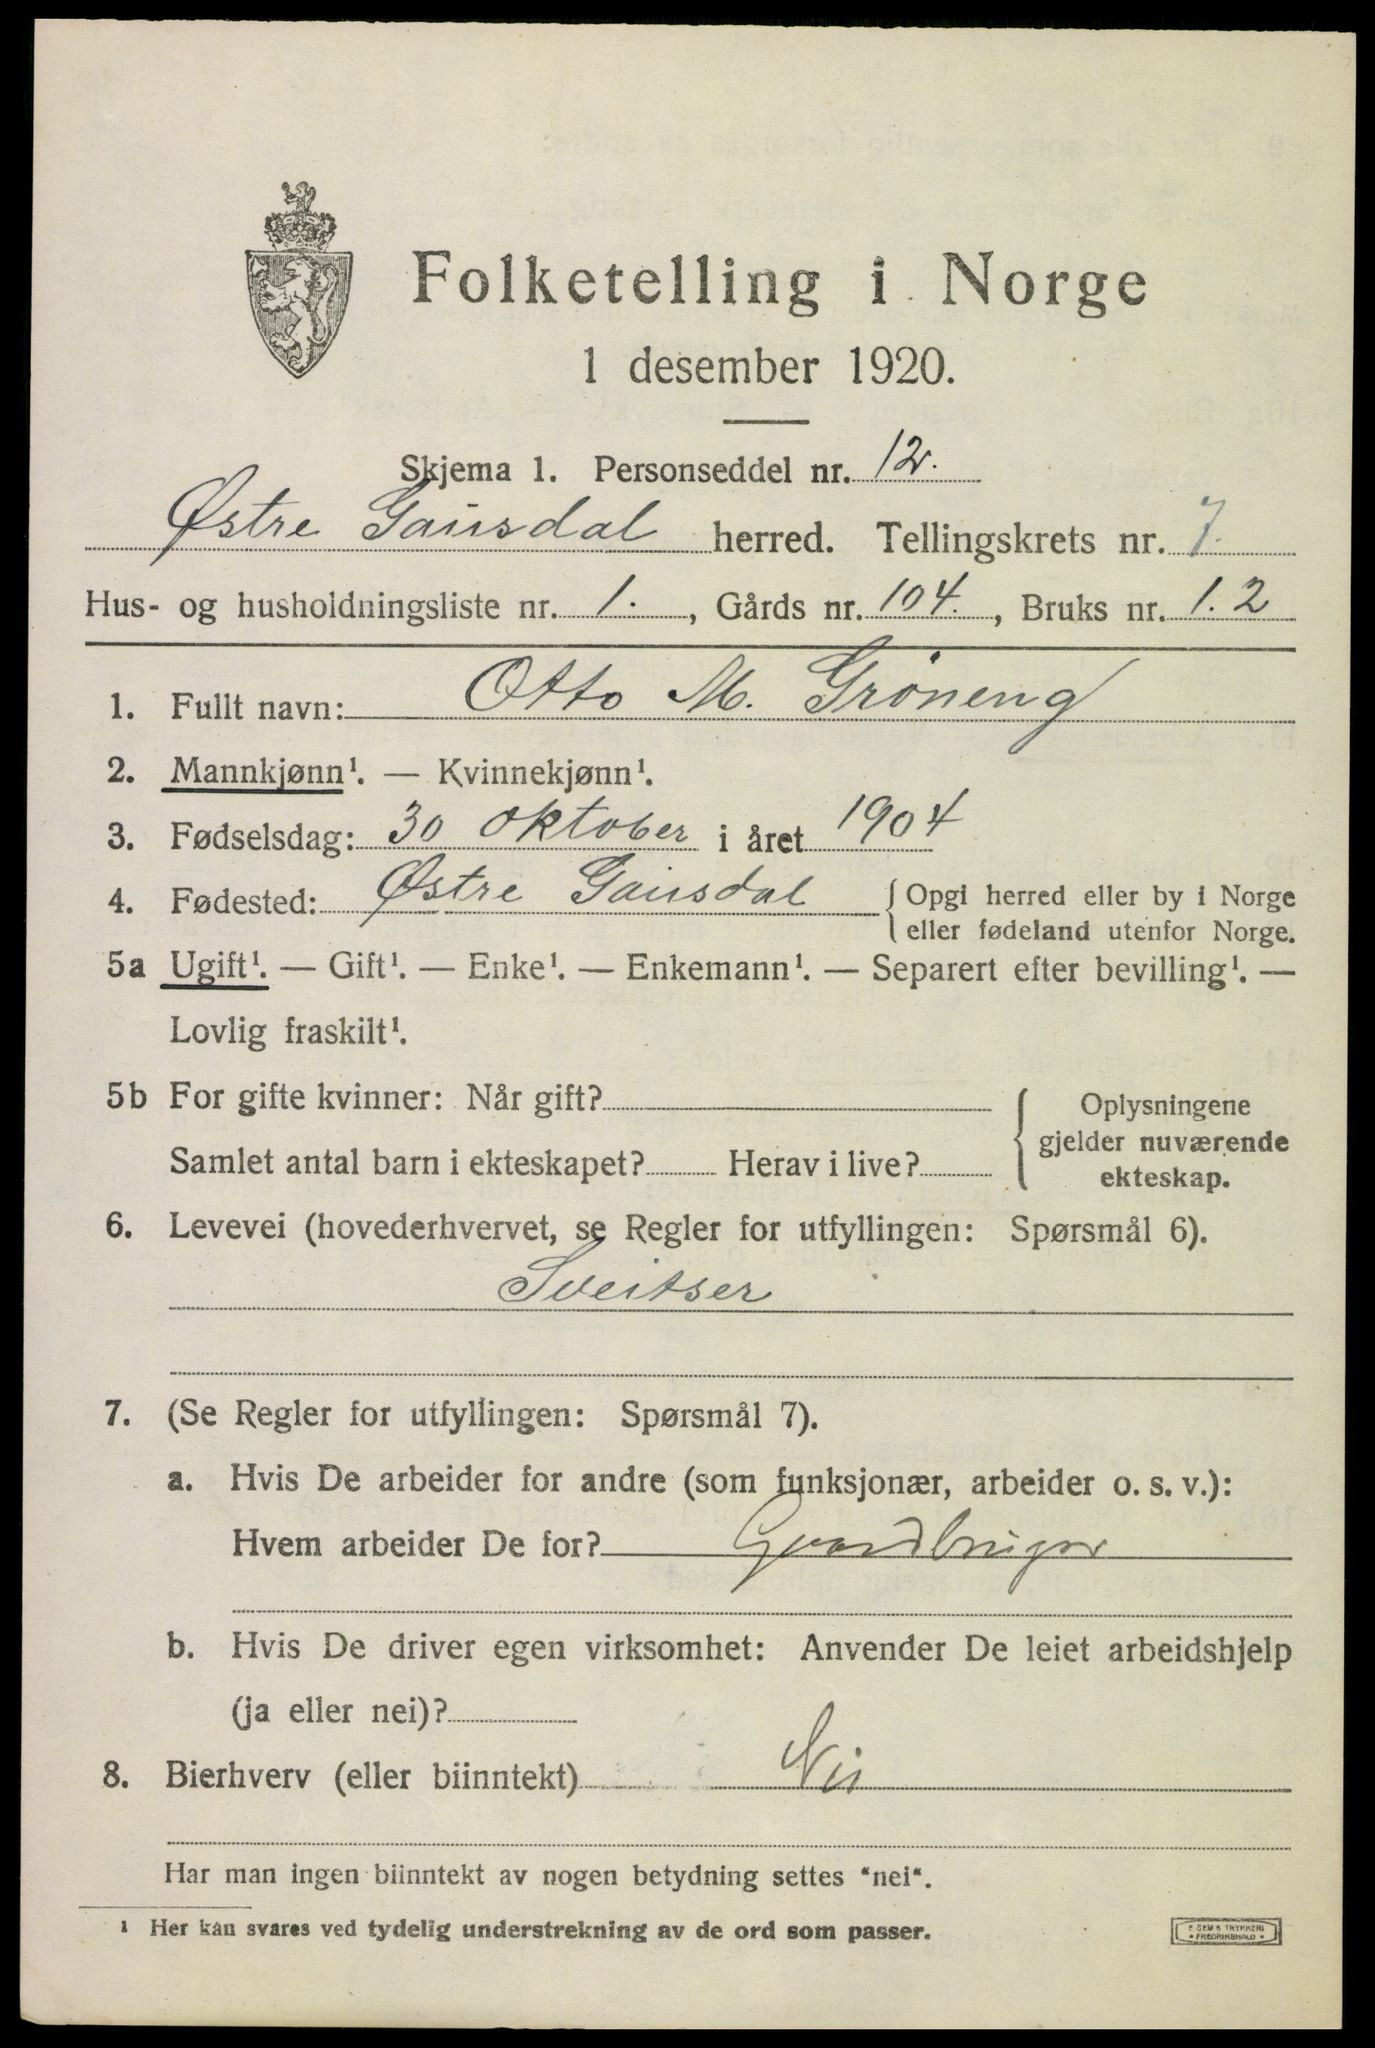 Folketelling i Norge
1 desember 1920.
Skjema 1. Personseddel nr. 12.
Østre Gausdal herred. Tellingskrets nr. 7.
Hus- og husholdningsliste nr. 1., Gårds nr. 104., Bruks nr. 1.2
1. Fullt navn: Otto M. Gröneng
2. Mannkjønn¹. — Kvinnekjønn¹.
3. Fødselsdag: 30 oktober i året 1904
4. Fødested: Østre Gausdal { Opgi herred eller by i Norge
eller fødeland utenfor Norge.
5a Ugift¹. — Gift¹. — Enke¹. — Enkemann¹. — Separert efter bevilling¹. —
Lovlig fraskilt¹.
5b For gifte kvinner: Når gift?
Samlet antal barn i ekteskapet? Herav i live?
Oplysningene
gjelder nuværende
ekteskap.
6. Levevei (hovederhvervet, se Regler for utfyllingen: Spørsmål 6).
Sveitser
7. (Se Regler for utfyllingen: Spørsmål 7).
a. Hvis De arbeider for andre (som funksjonær, arbeider o. s. v.):
Hvem arbeider De for? Gaardbruger
b. Hvis De driver egen virksomhet: Anvender De leiet arbeidshjelp
(ja eller nei)?
8. Bierhverv (eller biinntekt) Nei
Har man ingen biinntekt av nogen betydning settes "nei".
¹ Her kan svares ved tydelig understrekning av de ord som passer.
E SEM'S TRYKKERI
FREDRIKSHALD